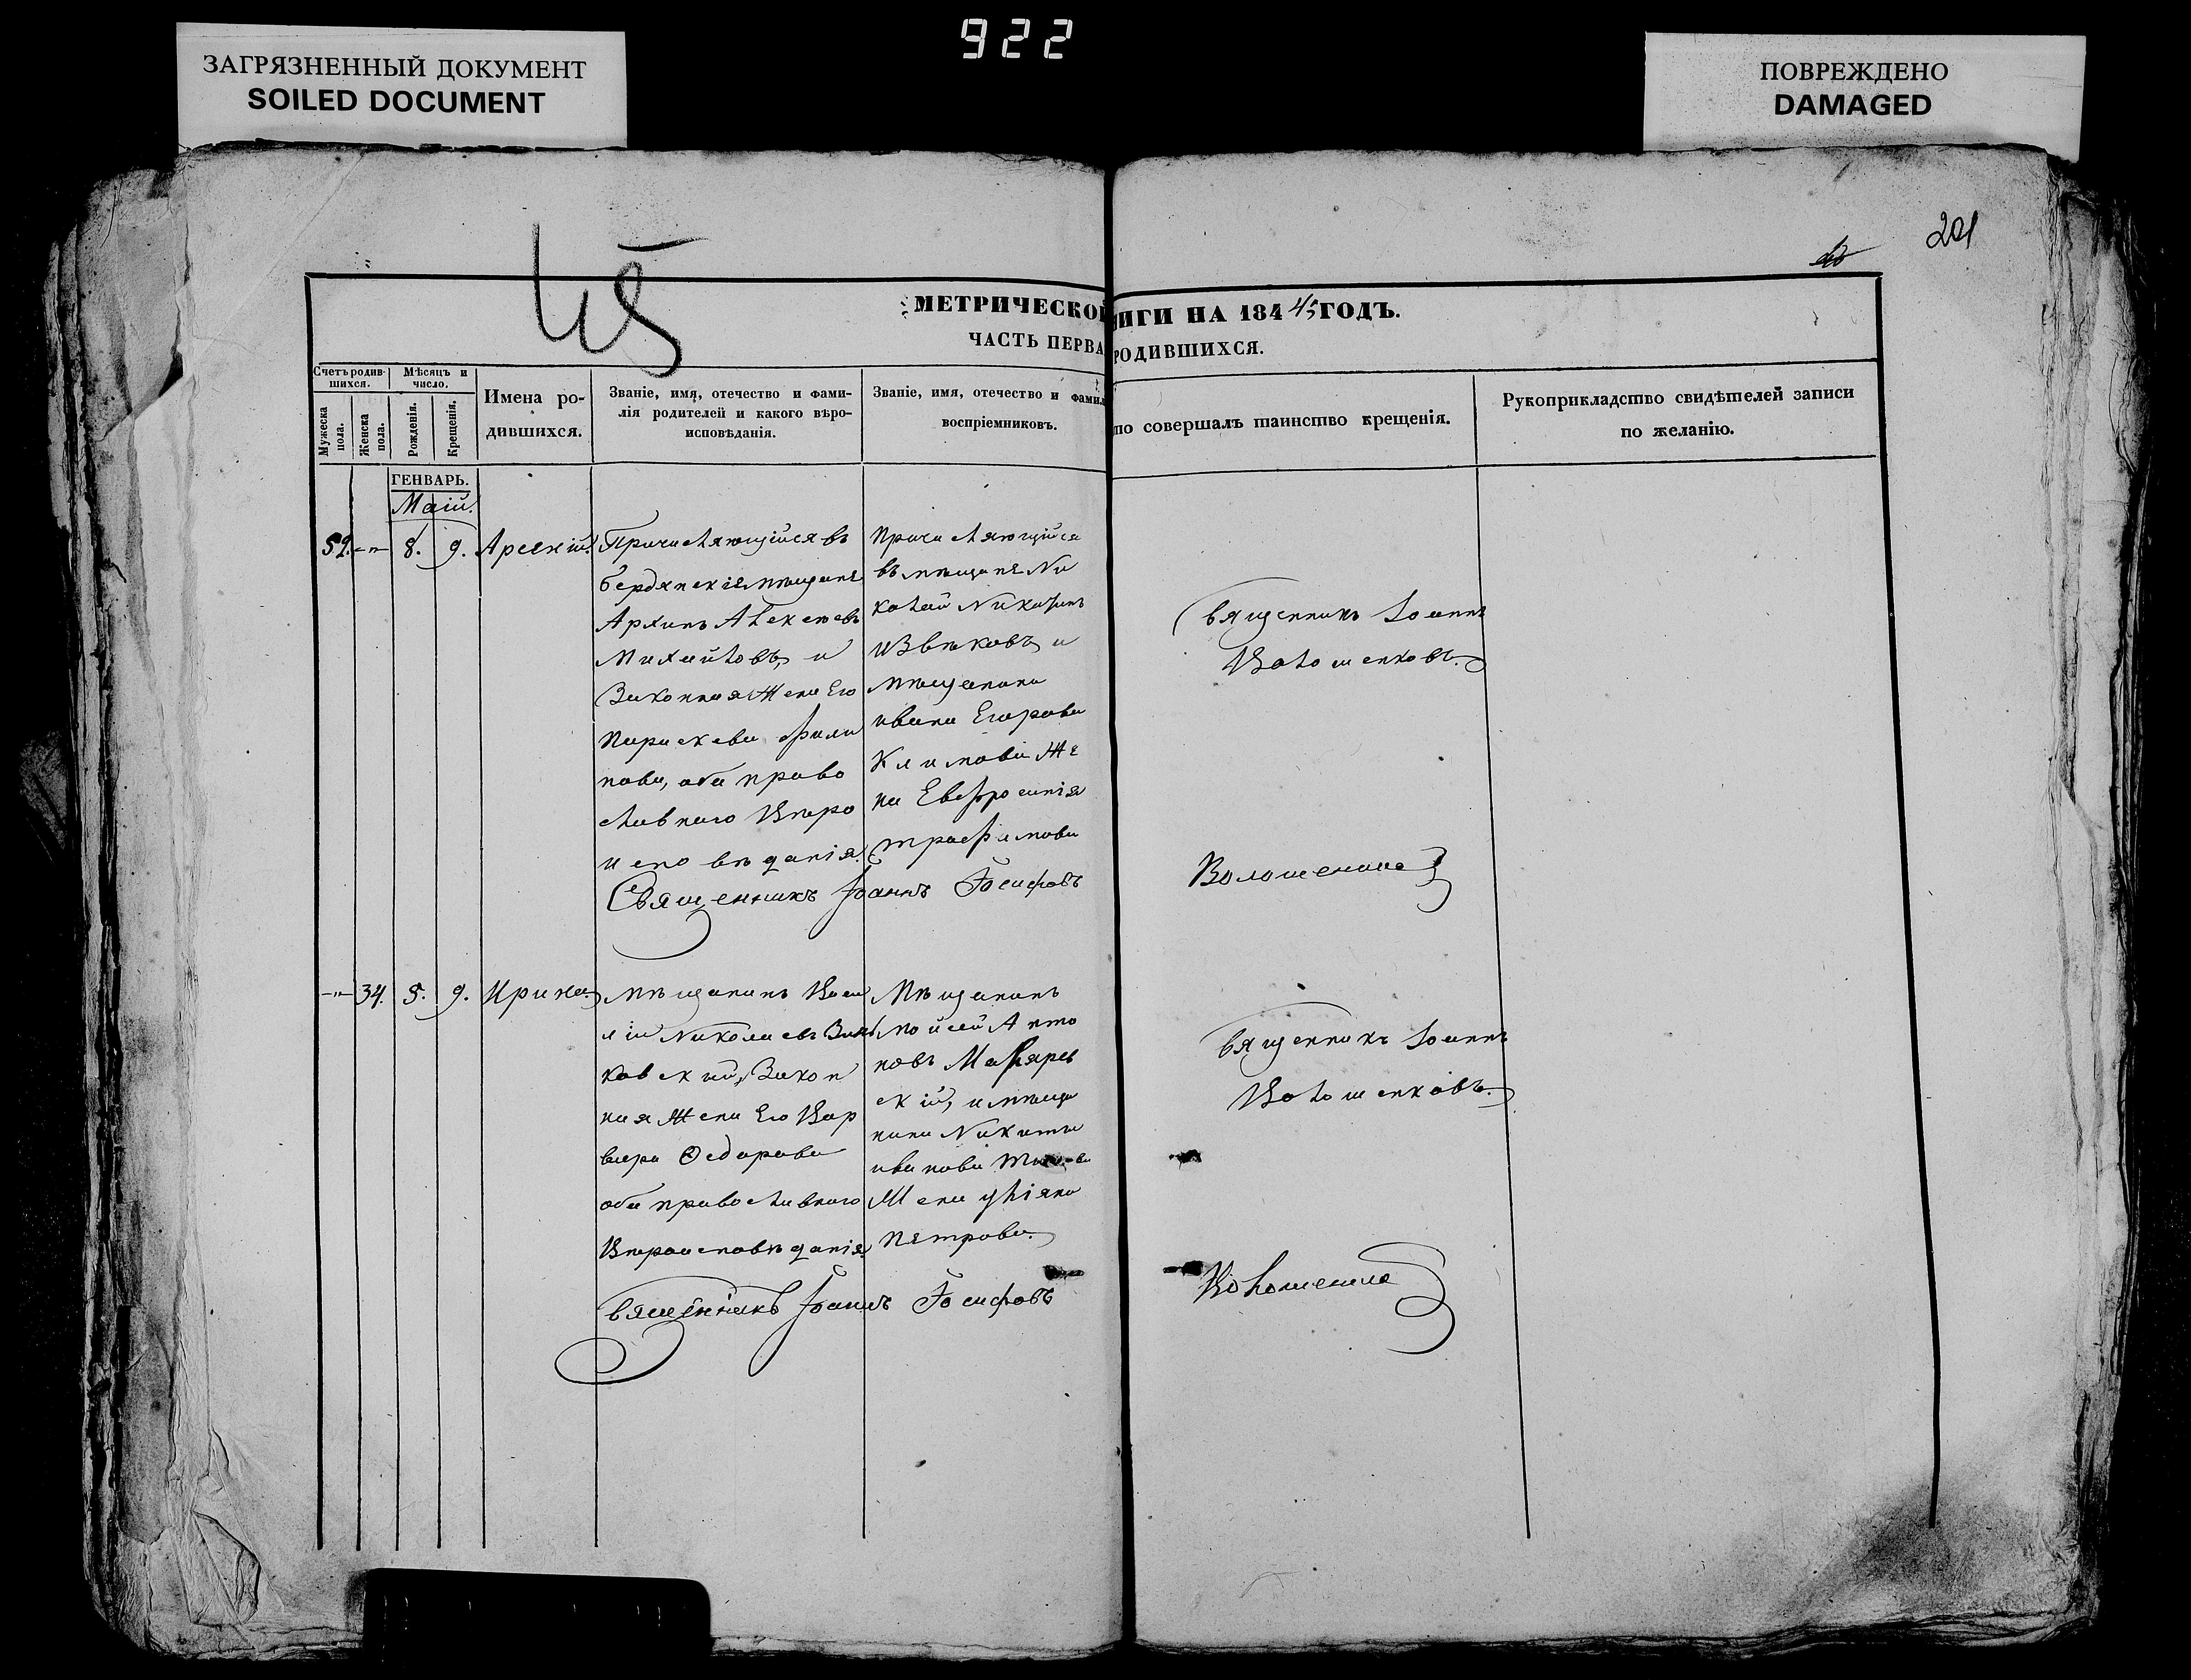 922
ЗАГРЯЗНЕННЫЙ ДОКУМЕНТ
SOILED DOCUMENT
ПОВРЕЖДЕНО
DAMAGED
201
МЕТРИЧЕСКОЙ
ИГИ НА 18445 ГОДЪ.
ЧАСТЬ ПЕРВА
РОДИВШИХСЯ.
Счетъ родив-
шихся.
Мужеска
пола.
Женска
пола.
Мѣсяцъ и
число.
Рожденія.
Крещенія.
Имена ро-
дившихся.
Званіе, имя, отечество и фами-
лія родителей и какого вѣро-
исповѣданія.
Званіе, имя, отечество и фамил
воспріемниковъ.
то совершалъ таинство крещенія.
Рукоприкладство свидѣтелей записи
по желанію.
ГЕНВАРЬ.
Маій.
52. 8. 9. Арсеній
Причисляющійся въ
бердянскія мѣщане
Архипъ Алексѣевъ
Михайловъ, и
Законная Жена Его
Параскева Фили
пова, оба право
славнаго Вѣро
исповѣданія.
Причисляющійся
въ мѣщане Ни
колай Никитинъ
и
мѣщанина
ивана Егорова
Климова Же
на Евфросинія
трофимова
Священникъ Іоаннъ
Волошенковъ.
Священникъ Іоаннъ Іосифовъ
34. 5. 9. Ирина
Мѣщанинъ Васи
лій Николаевъ
ковскій, Закон
ная Жена Его Вар
вара Ѳедорова
оба православнаго
Вѣроисповѣданія
Мѣщанинъ
мойсей Анто
новъ
скій, и мѣща
нина Никиты
иванова
Жена уліяна
Петрова.
Священникъ Іоаннъ
Волошенковъ.
Священникъ Іоаннъ Іосифовъ